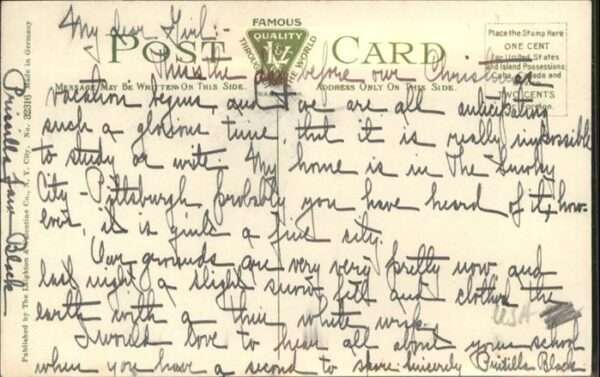 My dear Girl:-
FAMOUS
QUALITY
THROUGHOUT THE WORLD
POST CARD
Place the Stamp Here
ONE CENT
for United States
and Island Possessions
Cuba, Canada and
TWO CENTS
This the day before our Christmas
MESSAGE MAY BE WRITTEN ON THIS SIDE.
ADDRESS ONLY ON THIS SIDE.
vacation begins and we are all anticipating
such a glorious time, that it is really impossible
to study or write. My home is in The Smoky
City - Pittsburgh, probably you have heard of it, how-
ever, it is quite a fine city.
Our grounds are very very pretty now and
last night a slight snow fell and clothed the
earth with a thin white
USA
I would love to hear all about your school
when you have a second to spare. Sincerely Pristilla Black
Pristilla Black
Published by The Leighton & Valentine Co., N. Y. City. No. 32316 Made in Germany